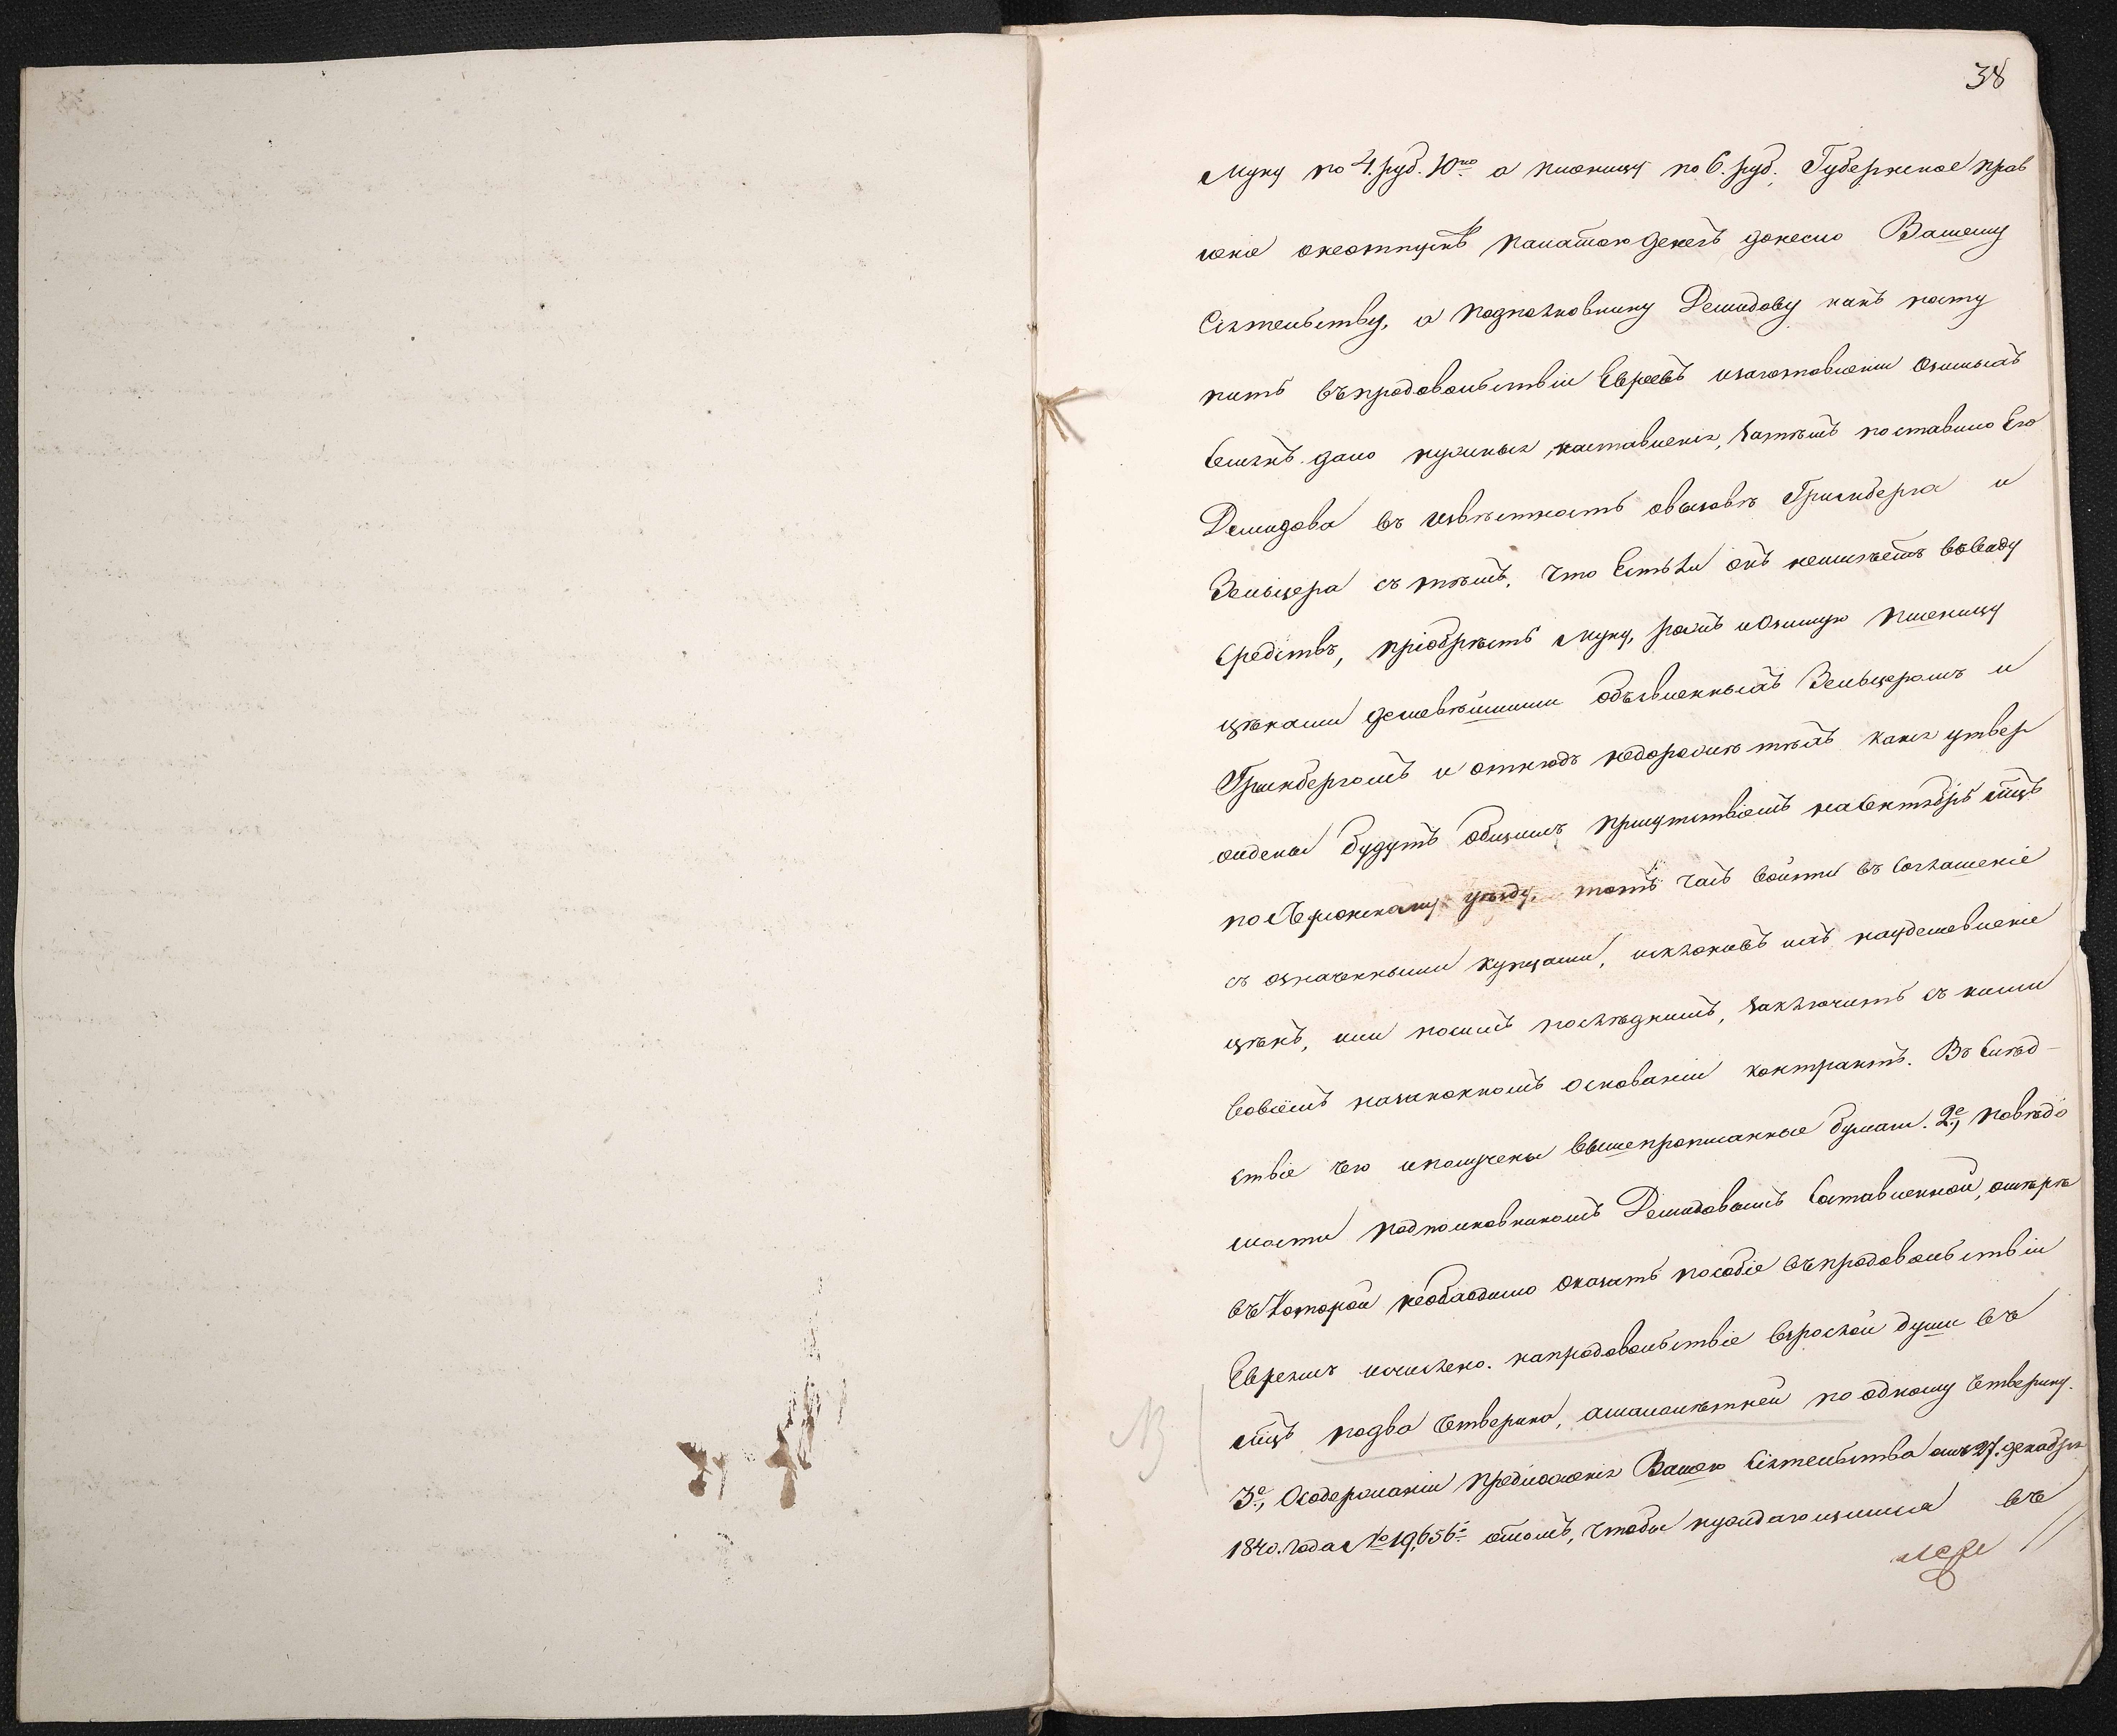 38
Муку по 4. руб. 10 ко а пшеницу по 6. руб. Губернское прав
леніе онеотпускѣ палатою денегъ донесло Вашему
Сіятельству, а подполковнику Демидову какъ посту
пить въпродовольствіи Евреевъ изаготовленіи озимыхъ
Семянъ дано нужныя наставленія, затѣмъ поставило Его
Демидова въ извѣстность овызовѣ Гринберга и
Зельцера съ тѣмъ, что Естьли онъ неимѣетъ ввиду
средствъ, пріобрѣсть муку, рожь иОзимую пшеницу
цѣнами дешевѣйшими объявленныхъ Зельцеромъ и
Гринбергомъ и отнюдь недорожѣ тѣхъ какія утвер
ждены будутъ общимъ присутствіемъ наСентябрь мцъ
поХерсонскому уѣзду, тотъ часъ войти въ Соглашеніе
съ означенными купцами, исклонивъ ихъ наудешевленіе
цѣнъ, или посимъ послѣднимъ, заключить съ ними
Совсемъ назаконномъ основаніи контрактъ. Въ Слѣд-
ствіе чего иполучены вышепрописанные бумаги. 2е, повѣдо
мости подполковникомъ Демидовымъ Составленной, омѣрѣ
въКоторой необходимо оказать пособіе въпродовольствіи
Евреямъ исчислено. напродовольствіе взрослой души въ
мцъ подва четверика, амалолѣтней по одному четверику.
NB
3е, Осодержаніи предложенія Вашего Сіятельства отъ 27. декабря
1840. года № 19,656: отомъ, чтобы нуждающимся въ